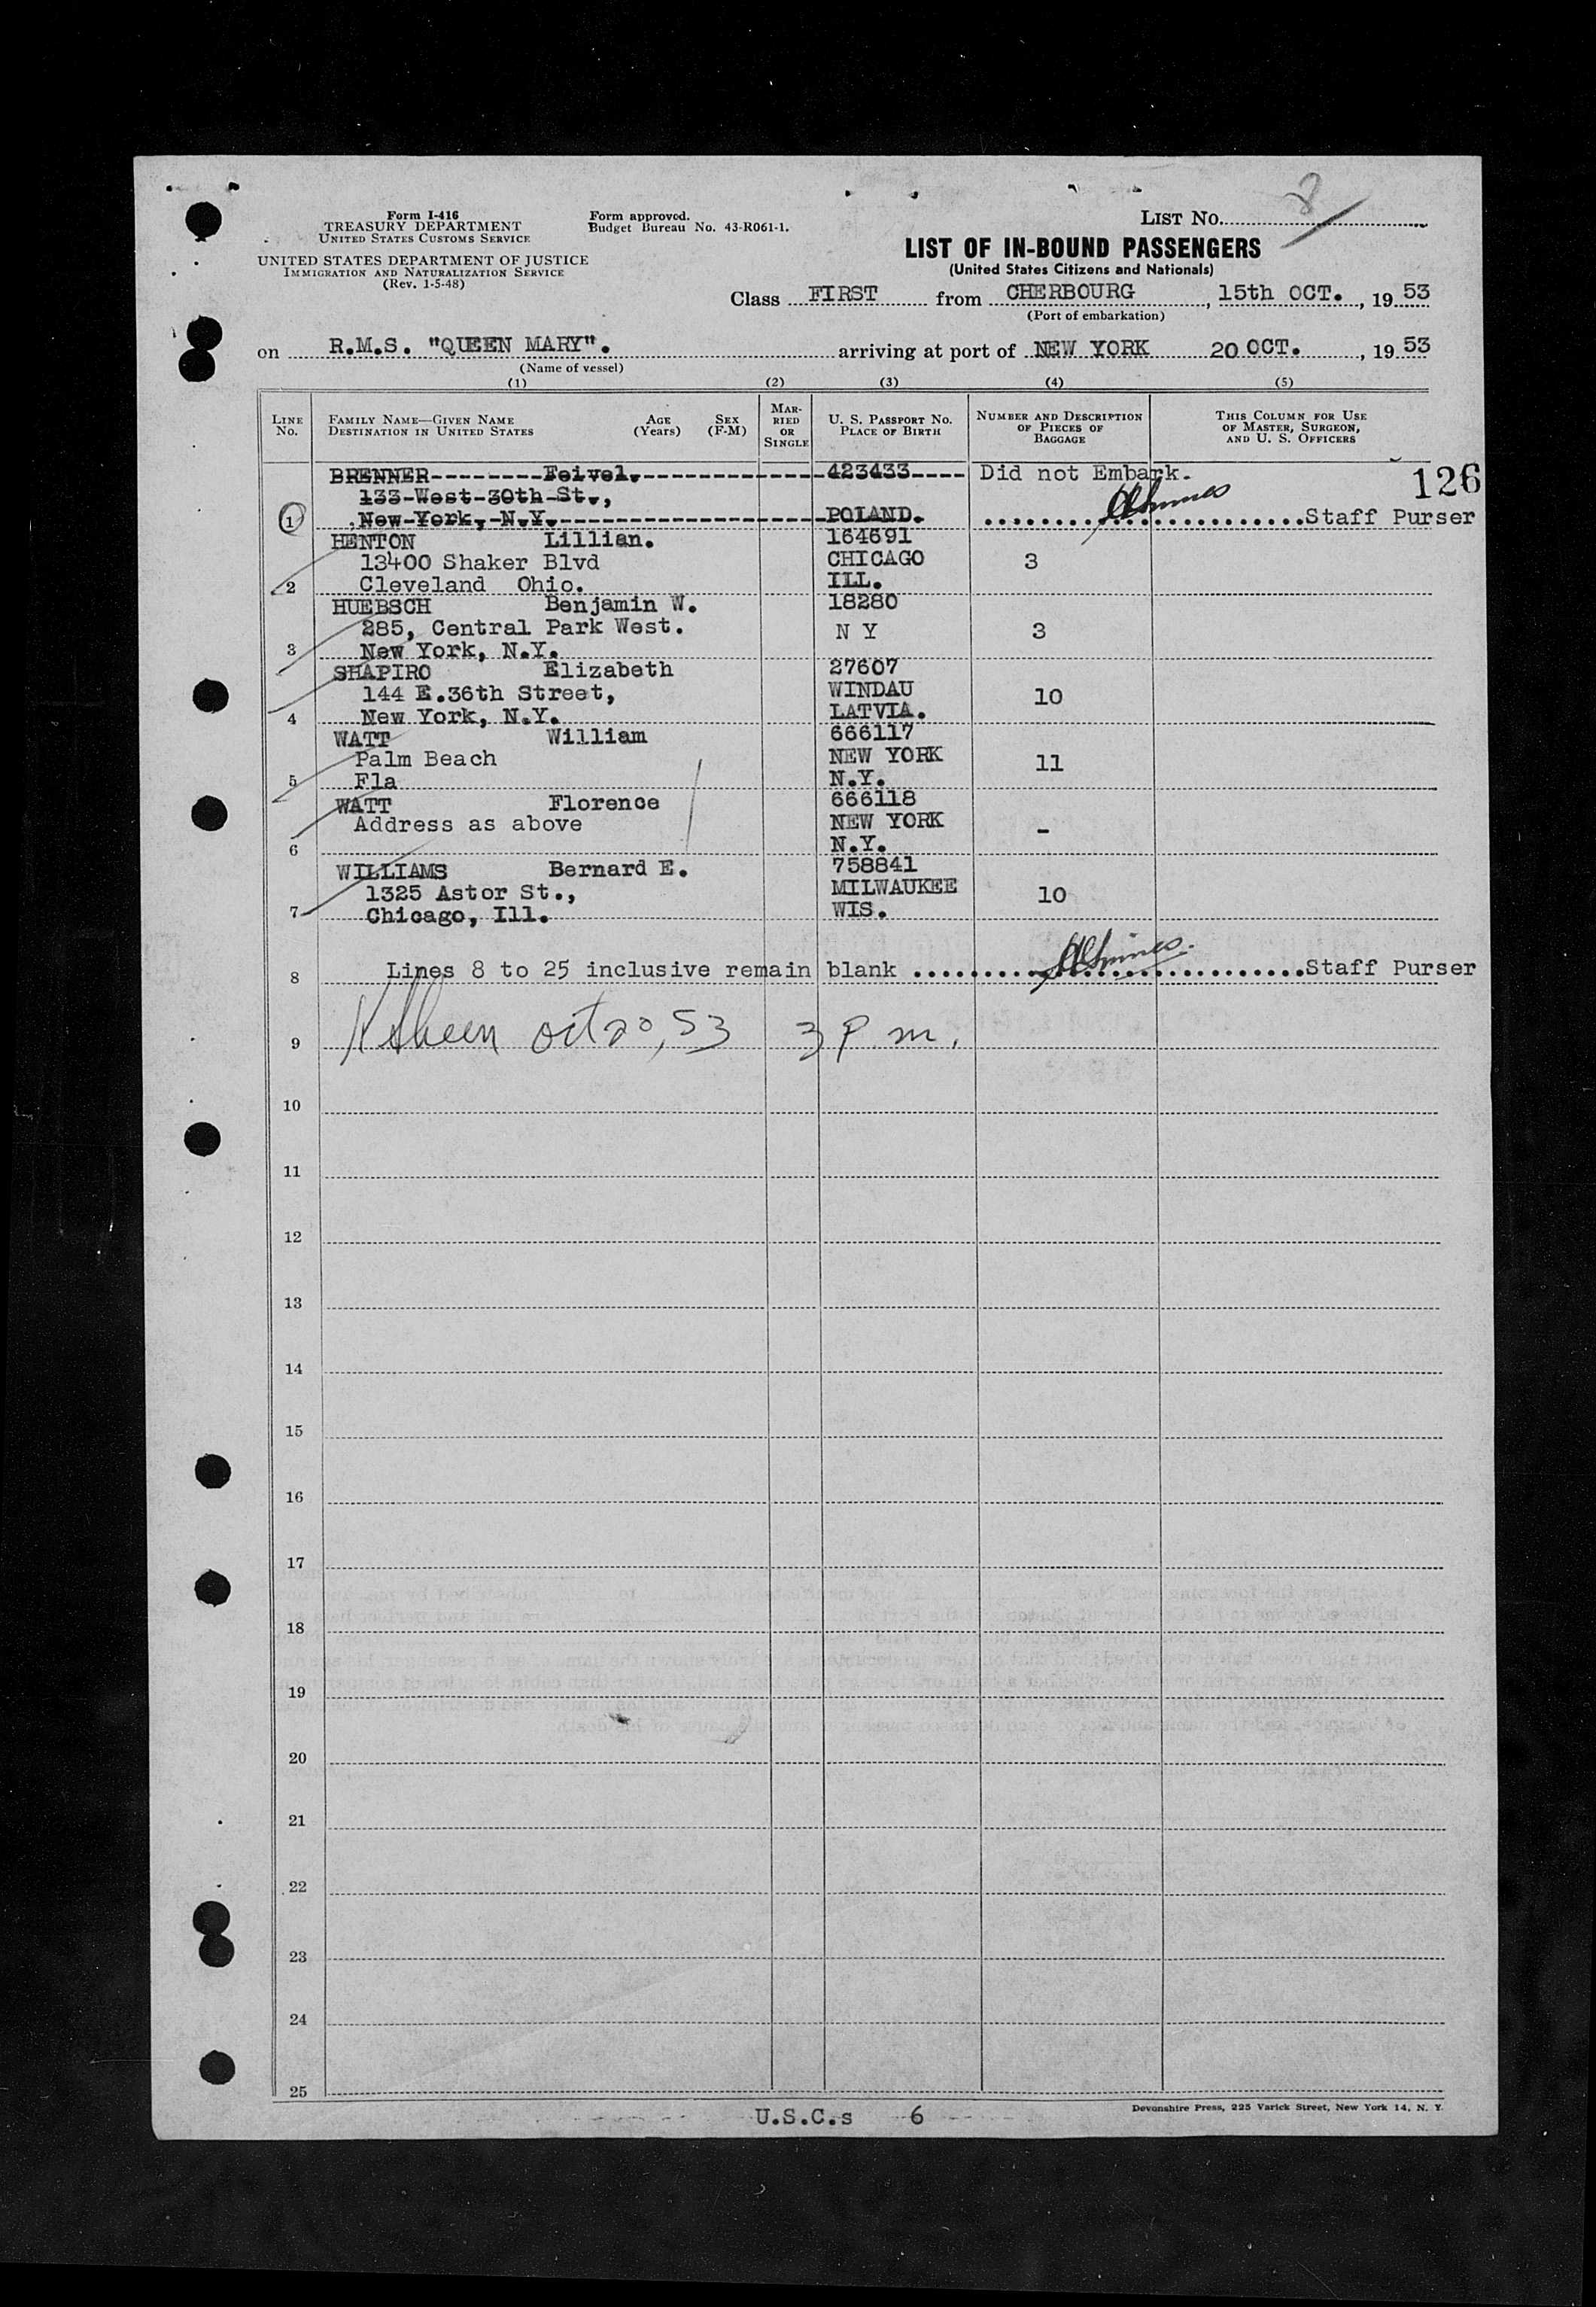 Form I-416
TREASURY DEPARTMENT
UNITED STATES CUSTOMS SERVICE
UNITED STATES DEPARTMENT OF JUSTICE
IMMIGRATION AND NATURALIZATION SERVICE
(Rev. 1-5-48)
Form approved.
Budget Bureau No. 43-R061-1.
LIST NO. 8
LIST OF IN-BOUND PASSENGERS
(United States Citizens and Nationals)
Class FIRST from CHERBOURG, 15th OCT., 19 53
(Port of embarkation)
on R.M.S. "QUEEN MARY". arriving at port of NEW YORK 20 OCT., 19 53
(Name of vessel)
(1) (2) (3) (4) (5)
LINE NO.
FAMILY NAME—GIVEN NAME AGE SEX
DESTINATION IN UNITED STATES (Years) (F-M)
MARRIED OR SINGLE
U. S. PASSPORT NO.
PLACE OF BIRTH
NUMBER AND DESCRIPTION
OF PIECES OF
BAGGAGE
THIS COLUMN FOR USE
OF MASTER, SURGEON,
AND U. S. OFFICERS
126
BRENNER--------Feivel.----------------423433---- Did not Embark.
133-West-30th-St.,
1 New-York,-N.Y.-----------------------POLAND. ........................Staff Purser
HENTON Lillian. 164691
13400 Shaker Blvd CHICAGO 3
2 Cleveland Ohio. ILL.
HUEBSCH Benjamin W. 18280
285, Central Park West. N Y 3
3 New York, N.Y.
SHAPIRO Elizabeth 27607
144 E.36th Street, WINDAU 10
4 New York, N.Y. LATVIA.
WATT William 666117
Palm Beach NEW YORK 11
5 Fla N.Y.
WATT Florence 666118
Address as above NEW YORK -
6 N.Y.
WILLIAMS Bernard E. 758841
1325 Astor St., MILWAUKEE 10
7 Chicago, Ill. WIS.
8 Lines 8 to 25 inclusive remain blank ........................Staff Purser
9 Oct 20, 53 3 P. m.
10
11
12
13
14
15
16
17
18
19
20
21
22
23
24
25
U.S.C.s 6
Devonshire Press, 225 Varick Street, New York 14, N. Y.